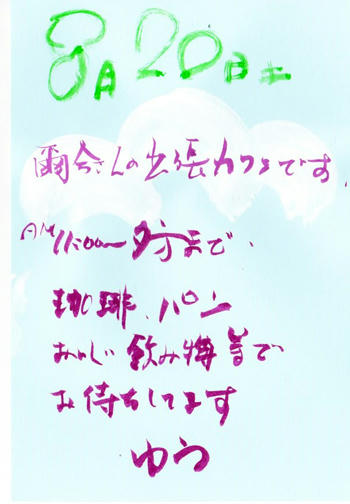 8月20日土
爾今さんの出張カフェです
AM11:00〜夕方まで、
珈琲、パン
飲み物等で
お待ちしてます
ゆう